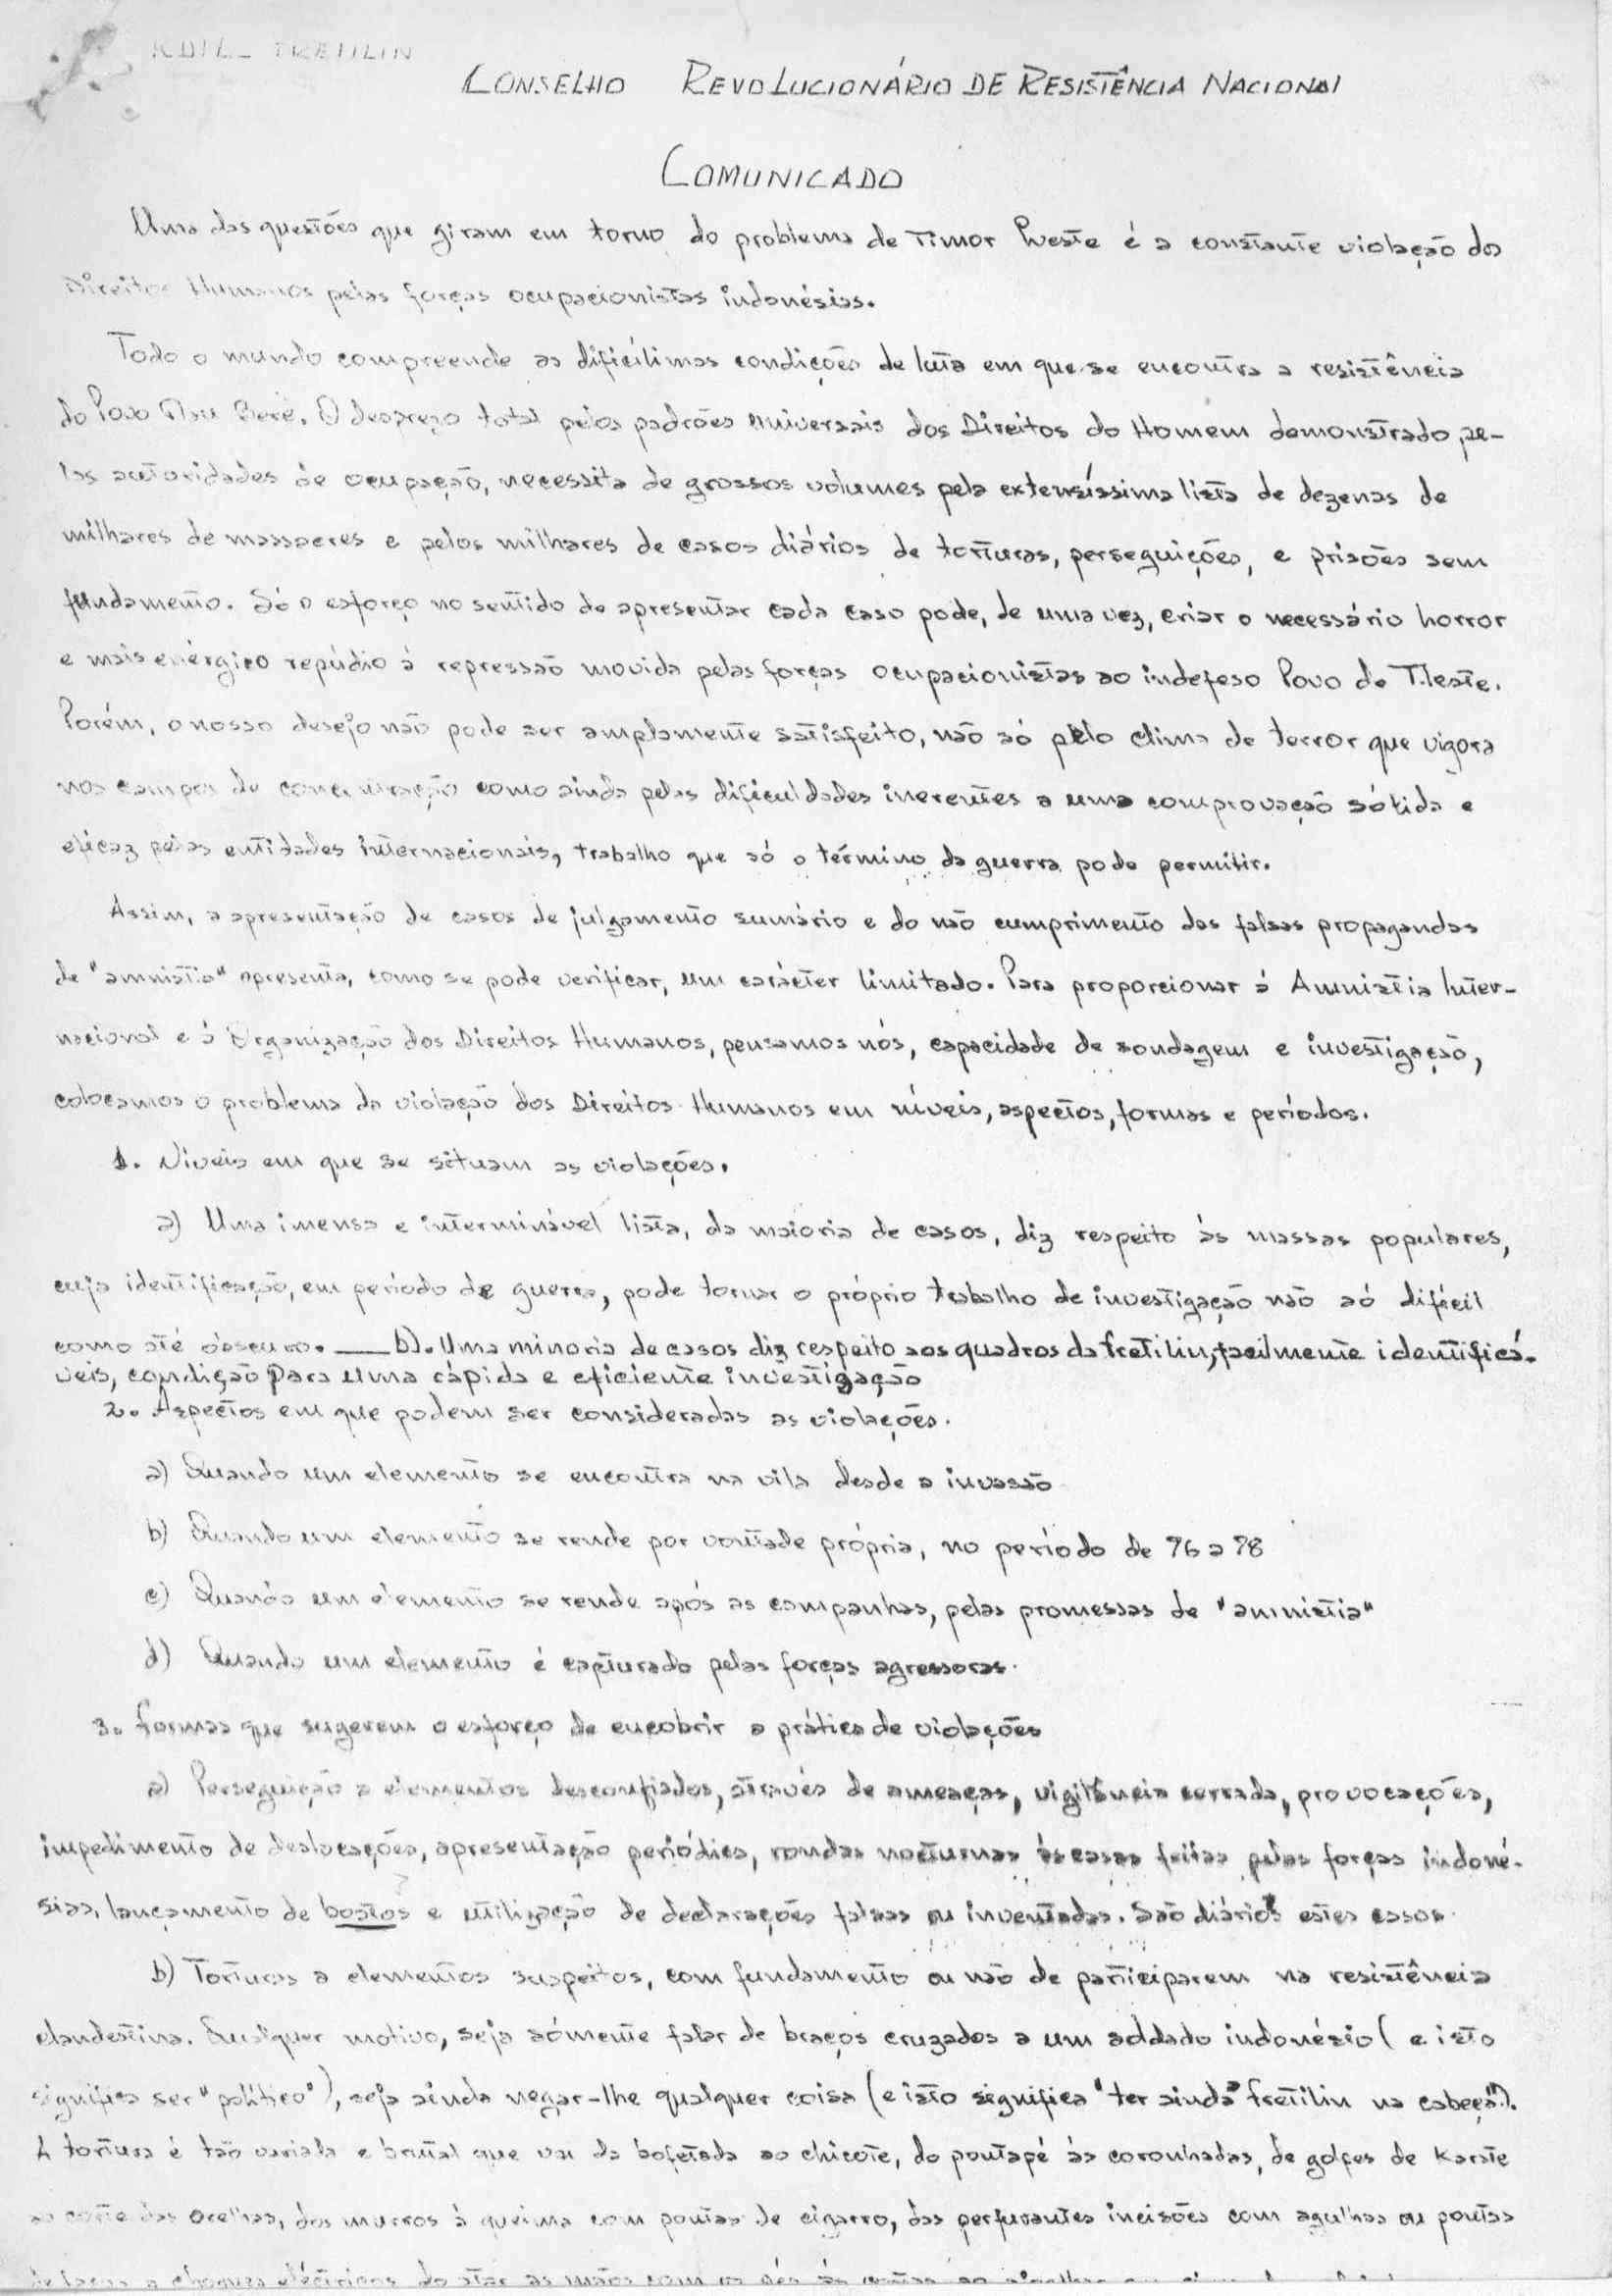 CONSELHO REVOLUCIONÁRIO DE RESISTÊNCIA NACIONAL
COMUNICADO
Uma das questões que giram em torno do problema de Timor Leste é a constante violação dos
Direitos Humanos pelas forças ocupacionistas indonésias.
Todo o mundo compreende as dificílimas condições de luta em que se encontra a resistência
do Povo Mau Bere. O desprezo total pelos padrões universais dos Direitos do Homem demonstrado pe-
las autoridades de ocupação, necessita de grossos volumes pela extensíssima lista de dezenas de
milhares de massacres e pelos milhares de casos diários de torturas, perseguições, e prisões sem
fundamento. Só o esforço no sentido de apresentar cada caso pode, de uma vez, criar o necessário horror
e mais enérgico repúdio á repressão movida pelas forças ocupacionistas ao indefeso Povo de T. Leste.
Porém, o nosso desejo não pode ser amplamente satisfeito, não só pelo clima de terror que vigora
nos campos de concentração como ainda pelas dificuldades inerentes a uma comprovação sólida e
eficaz pelas entidades internacionais, trabalho que só o término da guerra pode permitir.
Assim, a apresentação de casos de julgamento sumário e do não cumprimento das falsas propagandas
de "amnistia" apresenta, como se pode verificar, um carácter limitado. Para proporcionar á Amnistia Inter-
nacional e á Organização dos Direitos Humanos, pensamos nós, capacidade de sondagem e investigação,
colocamos o problema da violação dos Direitos Humanos em níveis, aspectos, formas e períodos.
1. Níveis em que se situam as violações.
a) Uma imensa e interminável lista, da maioria de casos, diz respeito às massas populares,
cuja identificação, em período de guerra, pode tornar o próprio trabalho de investigação não só difícil
como até obscuro. — b). Uma minoria de casos diz respeito aos quadros da Fretilin, facilmente identificá-
veis, condição para uma rápida e eficiente investigação
2. Aspectos em que podem ser consideradas as violações.
a) Quando um elemento se encontra na vila desde a invasão
b) Quando um elemento se rende por vontade própria, no período de 76 a 78
c) Quando um elemento se rende após as campanhas, pelas promessas de "amnistia"
d) Quando um elemento é capturado pelas forças agressoras.
3. Formas que sugerem o esforço de encobrir a prática de violações
a) Perseguição a elementos desconfiados, através de ameaças, vigilância cerrada, provocações,
impedimento de deslocações, apresentação periódica, rondas nocturnas às casas feitas pelas forças indoné-
sias, lançamento de bostos e utilização de declarações falsas ou inventadas. São diários estes casos.
b) Torturas a elementos suspeitos, com fundamento ou não de participarem na resistência
clandestina. Qualquer motivo, seja sómente falar de braços cruzados a um soldado indonésio (e isto
significa ser "político"), seja ainda negar-lhe qualquer coisa (e isto significa "ter ainda Fretilin na cabeça").
A tortura é tão variada e brutal que vai da bofetada ao chicote, do pontapé às coronhadas, de golpes de Karate
ao corte das orelhas, dos murros à queima com pontas de cigarro, das perfurantes incisões com agulhas ou pontas
choques eléctricos, do atar as mãos com os pés